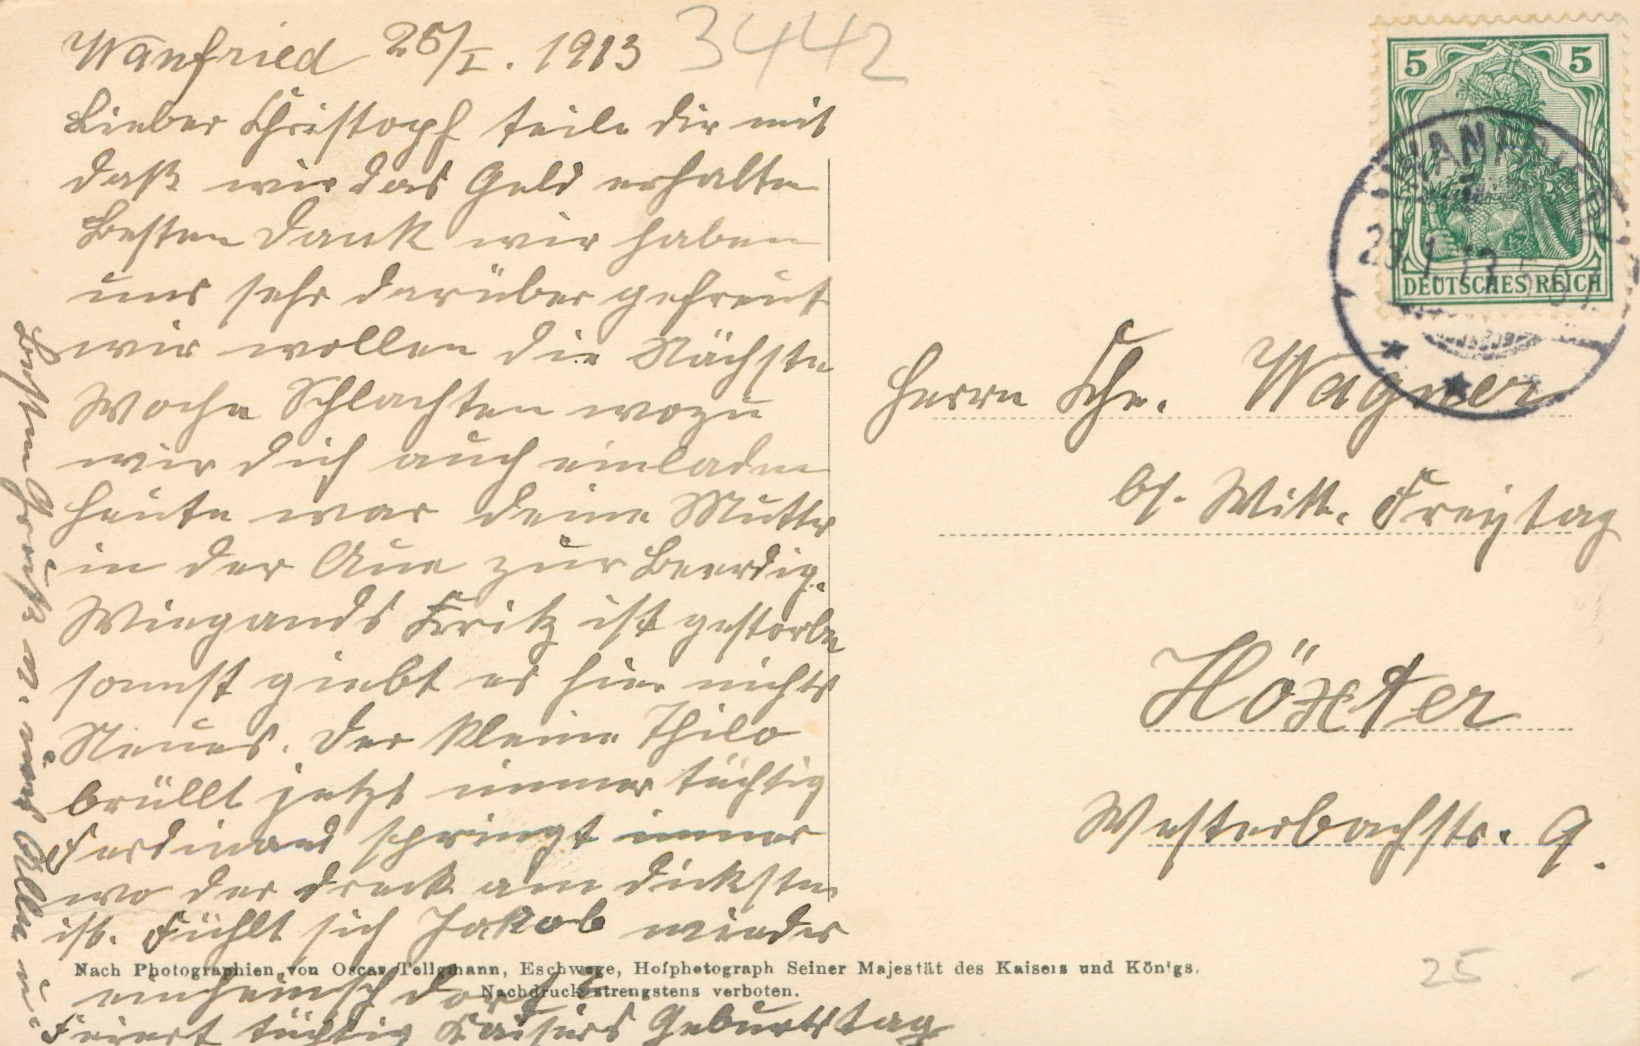 Wanfried 25/I. 1913
3442
Lieber Christoph teile dir mit
daß wir das Geld erhalten
Besten Dank wir haben
uns sehr darüber gefreut
wir wollen die Nächste
Woche Schlachten wozu
wir dich auch einladen
heute war deine Mutter
in der Aue zur Beerdig.
Wiegands Fritz ist gestorben
sonnst giebt es hier nichts
Neues. Der kleine Thilo
brüllt jetzt immer tüchtig
Ferdinand springt immer
wo der dreck am dicksten
ist. Fühlt sich Jakob wieder
einheimsch dort?
Feiert tüchtig Kaisers Geburtstag
Besten Gruß v. uns Allen
5 5
DEUTSCHES REICH
Herrn Chr. Wagner
bei Witt. Freytag
Höxter
Westerbachstr. 9.
Nach Photographien von Oscar Tellgmann, Eschwege, Hofphotograph Seiner Majestät des Kaisers und Königs.
Nachdruck strengstens verboten.
25